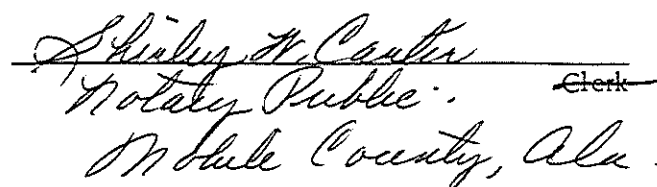 Shirley W. Carter
Notary Public. Clerk
Mobile County, Ala.